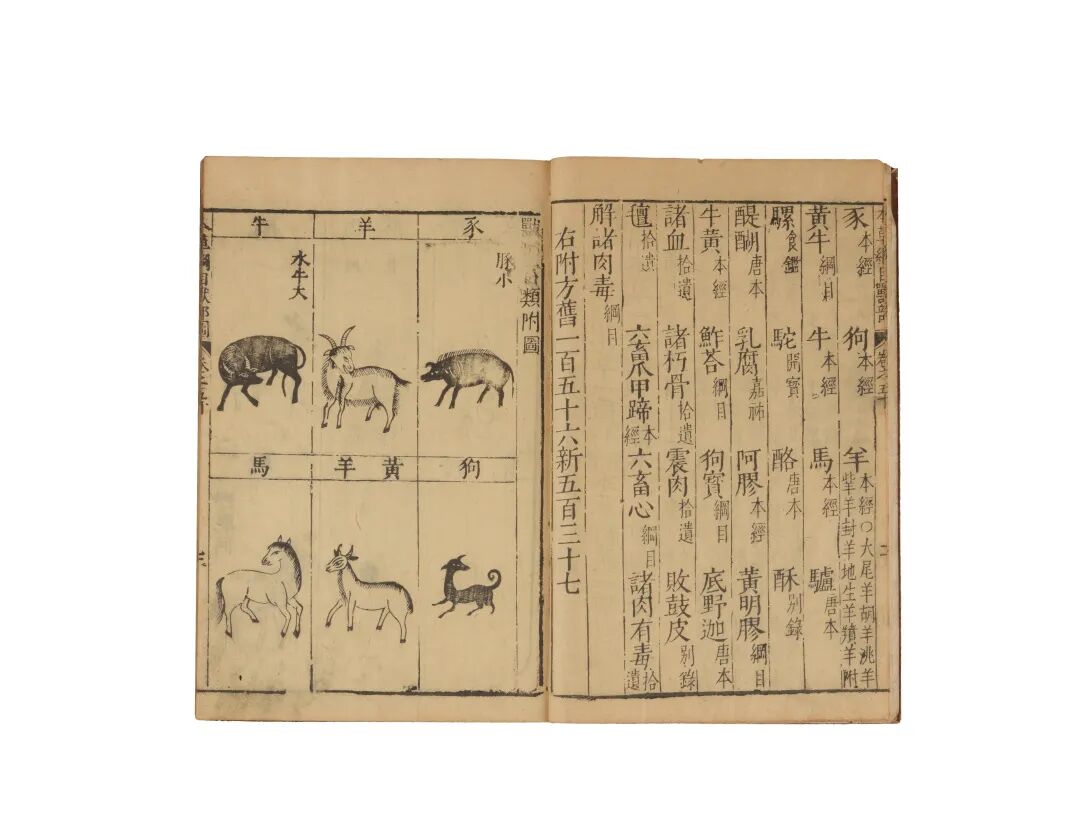 本草綱目獸部
豕本經 狗本經 羊本經○大尾羊胡羊洮羊㸿羊封羊地生羊羵羊附
黃牛綱目 牛本經 馬本經 驢唐本
騾食鑑 駝開寶 酪唐本 酥別錄
醍醐唐本 乳腐嘉祐 阿膠本經 黃明膠綱目
牛黃本經 鮓荅綱目 狗寶綱目 底野迦唐本
諸血拾遺 諸朽骨拾遺 震肉拾遺 敗鼓皮別錄
氊拾遺 六畜爪甲蹄本經 六畜心綱目 諸肉有毒拾遺
解諸肉毒綱目
右附方舊一百五十六新五百三十七
類附圖
豕
豚小
羊
牛
水牛大
狗
黃羊
馬